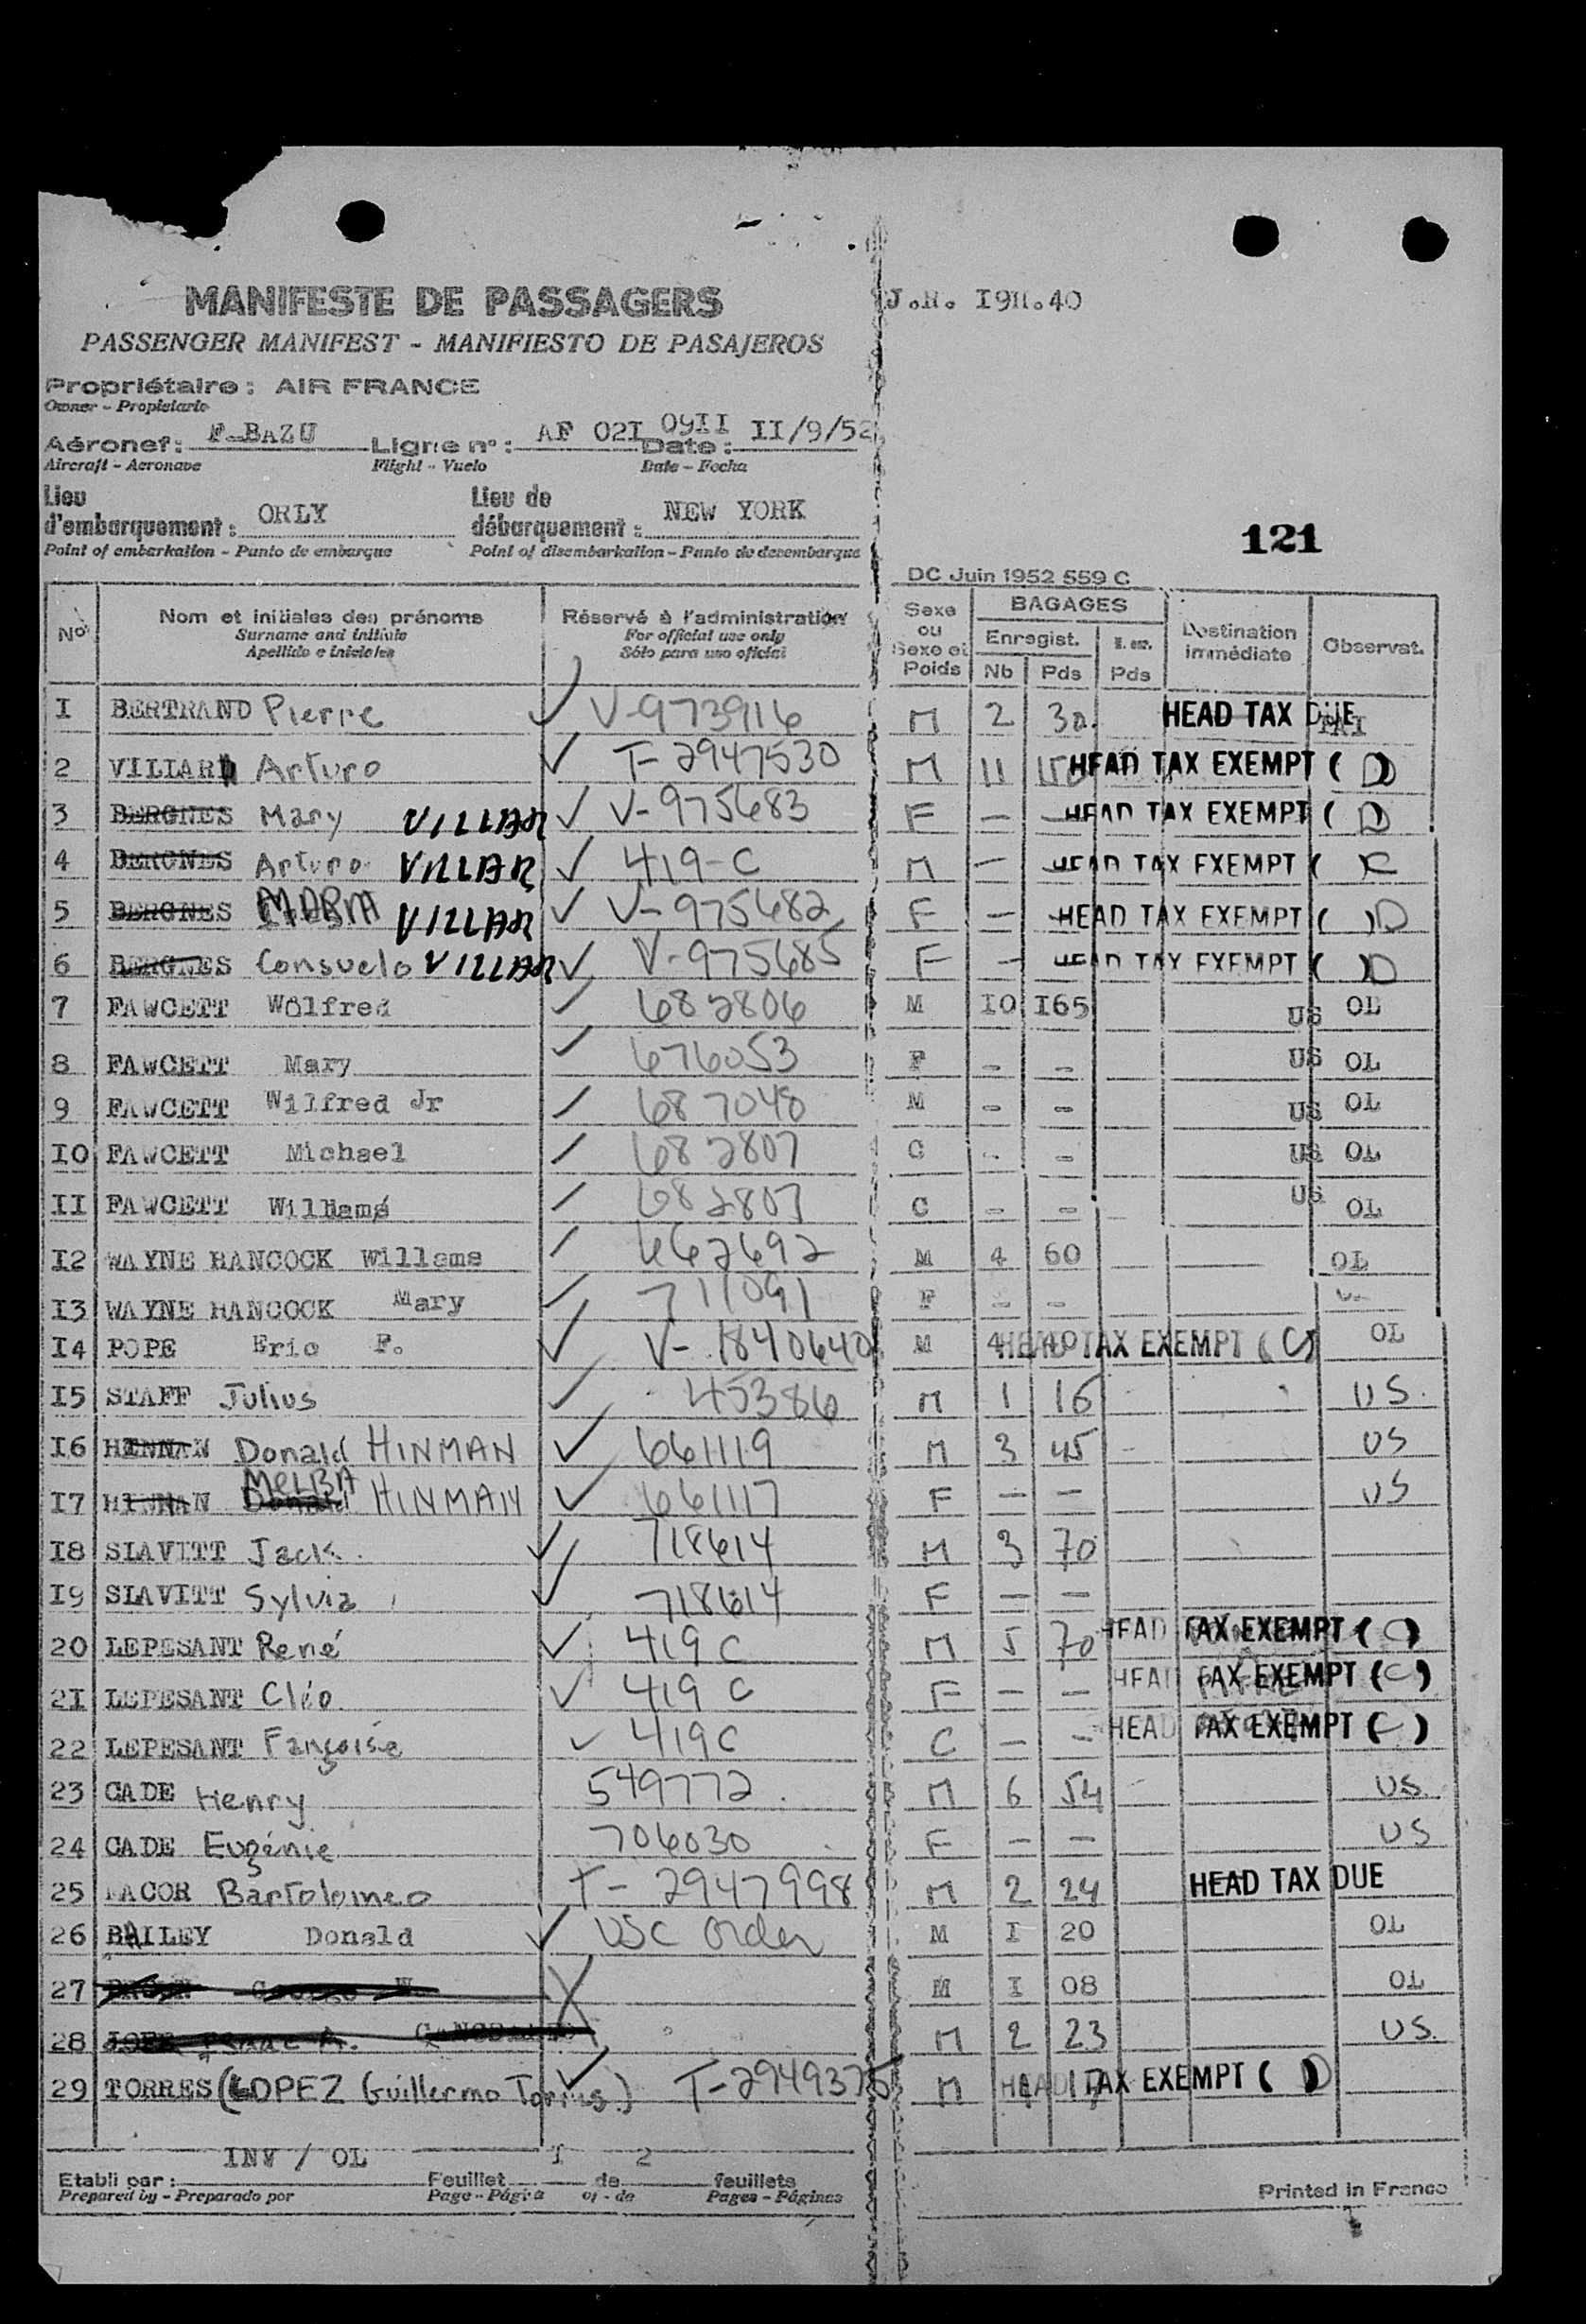 MANIFESTE DE PASSAGERS
J.H. I9H.40
PASSENGER MANIFEST - MANIFIESTO DE PASAJEROS
Propriétaire : AIR FRANCE
Owner - Propietario
Aéronef : F-BAZU Ligne n° : AF 02I 09II Date : II/9/52
Aircraft - Aeronave Flight - Vuelo Date - Fecha
Lieu d'embarquement : ORLY Lieu de débarquement : NEW YORK
Point of embarkation - Punto de embarque Point of disembarkation - Punto de desembarque
121
DC Juin 1952 559 C
No Nom et initiales des prénoms Réservé à l'administration Sexe ou Sexe et Poids BAGAGES Destination immédiate Observat.
Surname and initials For official use only Enregist.
Apellido e iniciales Sólo para uso oficial Nb Pds Pds
I BERTRAND Pierre V-973916 M 2 30. HEAD TAX DUE
2 VILLAR Arturo T-2947530 M 11 HEAD TAX EXEMPT ( D )
3 BERGNES Mary VILLAR V-975683 F — — HEAD TAX EXEMPT ( D )
4 BERGNES Arturo VILLAR 419-C M — HEAD TAX EXEMPT (
5 BERGNES MARIA VILLAR V-975682 F — HEAD TAX EXEMPT ( ) D
6 BERGNES Consuelo VILLAR V-975685 F — HEAD TAX EXEMPT ( ) D
7 FAWCETT Wilfred 682806 M IO I65 US OL
8 FAWCETT Mary 676053 F - - US OL
9 FAWCETT Wilfred Jr 687048 M - - US OL
IO FAWCETT Michael 682807 C - - US OL
II FAWCETT Williams 682807 C - - US OL
I2 WAYNE HANCOCK Willams 662692 M 4 60 OL
I3 WAYNE HANCOCK Mary 711091 F - -
I4 POPE Eric F. V-1840640 M 4 40 HEAD TAX EXEMPT ( C ) OL
I5 STAFF Julius 45386 M 1 16 US.
I6 HINNAN Donald HINMAN 661119 M 3 45 US
I7 HINNAN Donald MELBA HINMAN 661117 F — — US
I8 SLAVITT Jack 718614 M 3 70
I9 SLAVITT Sylvia 718614 F — —
20 LEPESANT René 419 C M 5 70 HEAD TAX EXEMPT ( C )
2I LEPESANT Cléo 419 C F — — HEAD TAX EXEMPT ( C )
22 LEPESANT Fançoise 419C C — - HEAD TAX EXEMPT ( C )
23 CADE Henry 549772 M 6 54 US.
24 CADE Eugénie 706030 F — — US
25 Bartolomeo T-2947998 M 2 24 HEAD TAX DUE
26 BAILEY Donald USC Order M I 20 OL
27 M I 08 OL
28 M 2 23 US.
29 TORRES (LOPEZ Guillermo Torres) T-2949375 M HEAD TAX EXEMPT ( D )
INV / OL I 2
Etabli par : Feuillet de feuillets
Prepared by - Preparado por Page - Página of - de Pages - Páginas
Printed in France